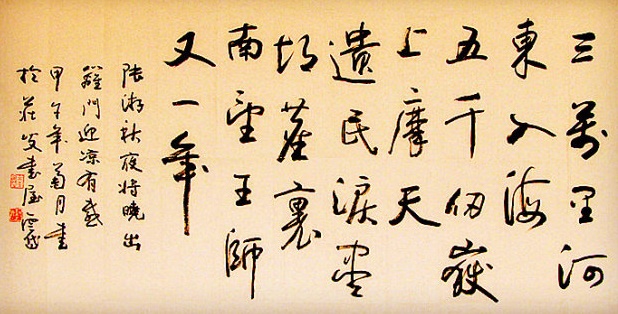 三萬里河
東入海
五千仞嶽
上摩天
遺民淚盡
胡塵裏
南望王師
又一年
陸游秋夜將曉出
籬門迎涼有感
甲午年菊月書
於莊書屋